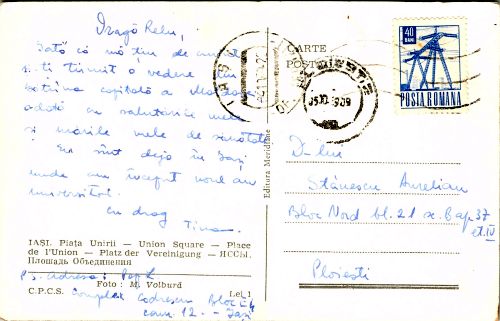 Dragă Relu,
Iată că mă țin de cuvânt
și-ți trimit o vedere din
bătrâna capitală a Moldovei
odată cu salutările mele
și urările mele de sănătate
Eu sunt deja în Iași
unde am început noul an
universitar.
cu drag
Tina
IAȘI. Piața Unirii — Union Square — Place
de l'Union — Platz der Vereinigung — ЯССЫ.
Площадь Объединения
Foto : M. Volburd
P.S. adresa:
C.P.C.S.
Lei 1
Complex Codrescu Bloc
cam 12. - Iași
Editura Meridiane
CARTE
POSTALĂ
IAȘI
PLOIESTI
40
BANI
POSTA ROMANA
D-lui
Stănescu Aurelian
Bloc Nord bl. 21 sc. B ap 37
et. IV
Ploiești